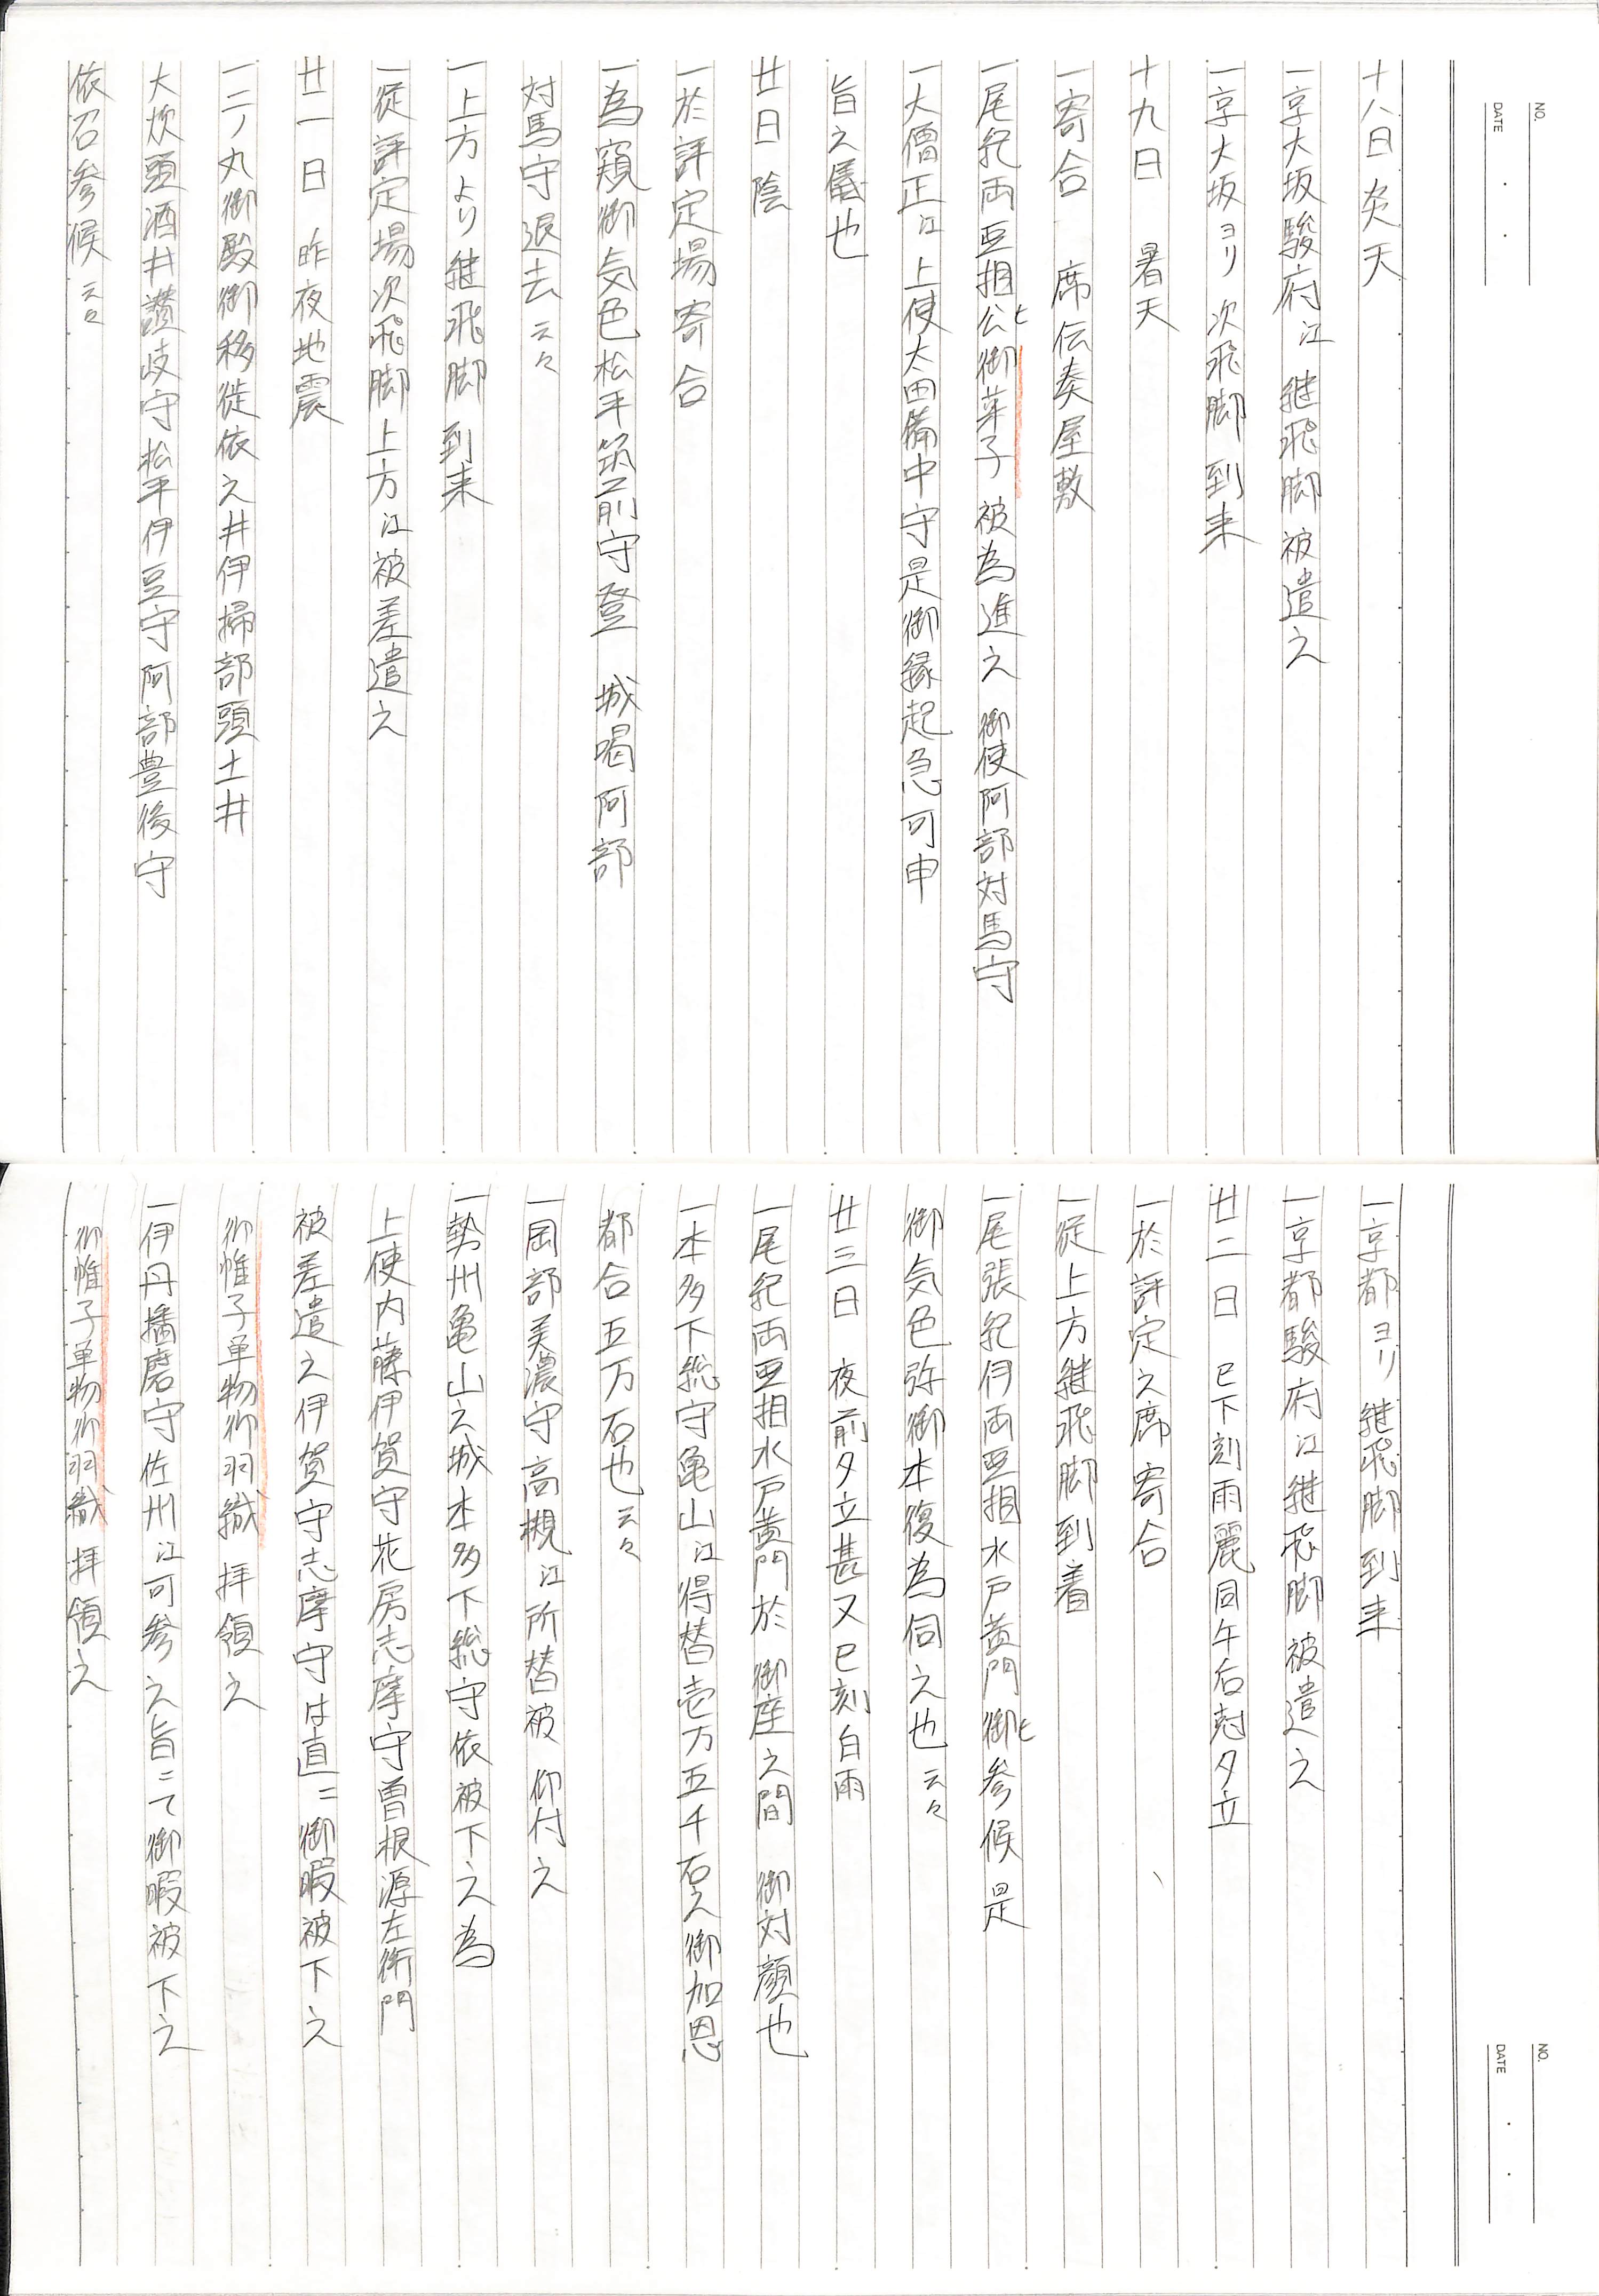 NO.
DATE
十八日 炎天
一京大坂駿府江 継飛脚被遣之
一京大坂ヨリ 次飛脚到来
十九日 暑天
一寄合 席伝奏屋敷
一尾紀両亜相公ヒ御菓子被為進之 御使阿部対馬守
一大僧正江 上使太田備中守是御縁起急可申
旨之儀也
廿日 陰
一於評定場寄合
一為窺御気色松平筑前守登 城喝阿部
対馬守退去云々
一上方より継飛脚到来
一従評定場次飛脚上方江被差遣之
廿一日 昨夜地震
一二ノ丸御殿御移徙依之井伊掃部頭土井
大炊頭酒井讃岐守松平伊豆守阿部豊後守
依召参候云々
NO.
DATE
一京都ヨリ 継飛脚到来
一京都駿府江継飛脚被遣之
廿二日 巳下刻雨麗同午后刻夕立
一於評定之席寄合
一従上方継飛脚到着
一尾張紀伊両亜相水戸黄門御ヒ参候是
御気色弥御本復為伺之也云々
廿三日 夜前夕立甚又巳刻白雨
一尾紀両亜相水戸黄門於 御座之間 御対顔也
一本多下総守亀山江得替壱万五千石之御加恩
都合五万石也云々
一岡部美濃守高槻江所替被 仰付之
一勢州亀山之城本多下総守依被下之為
上使内藤伊賀守花房志摩守曽根源左衛門
被差遣之伊賀守志摩守は直ニ御暇被下之
御帷子単物御羽織 拝領之
一伊丹播磨守佐州江可参之旨ニて御暇被下之
御帷子単物御羽織 拝領之